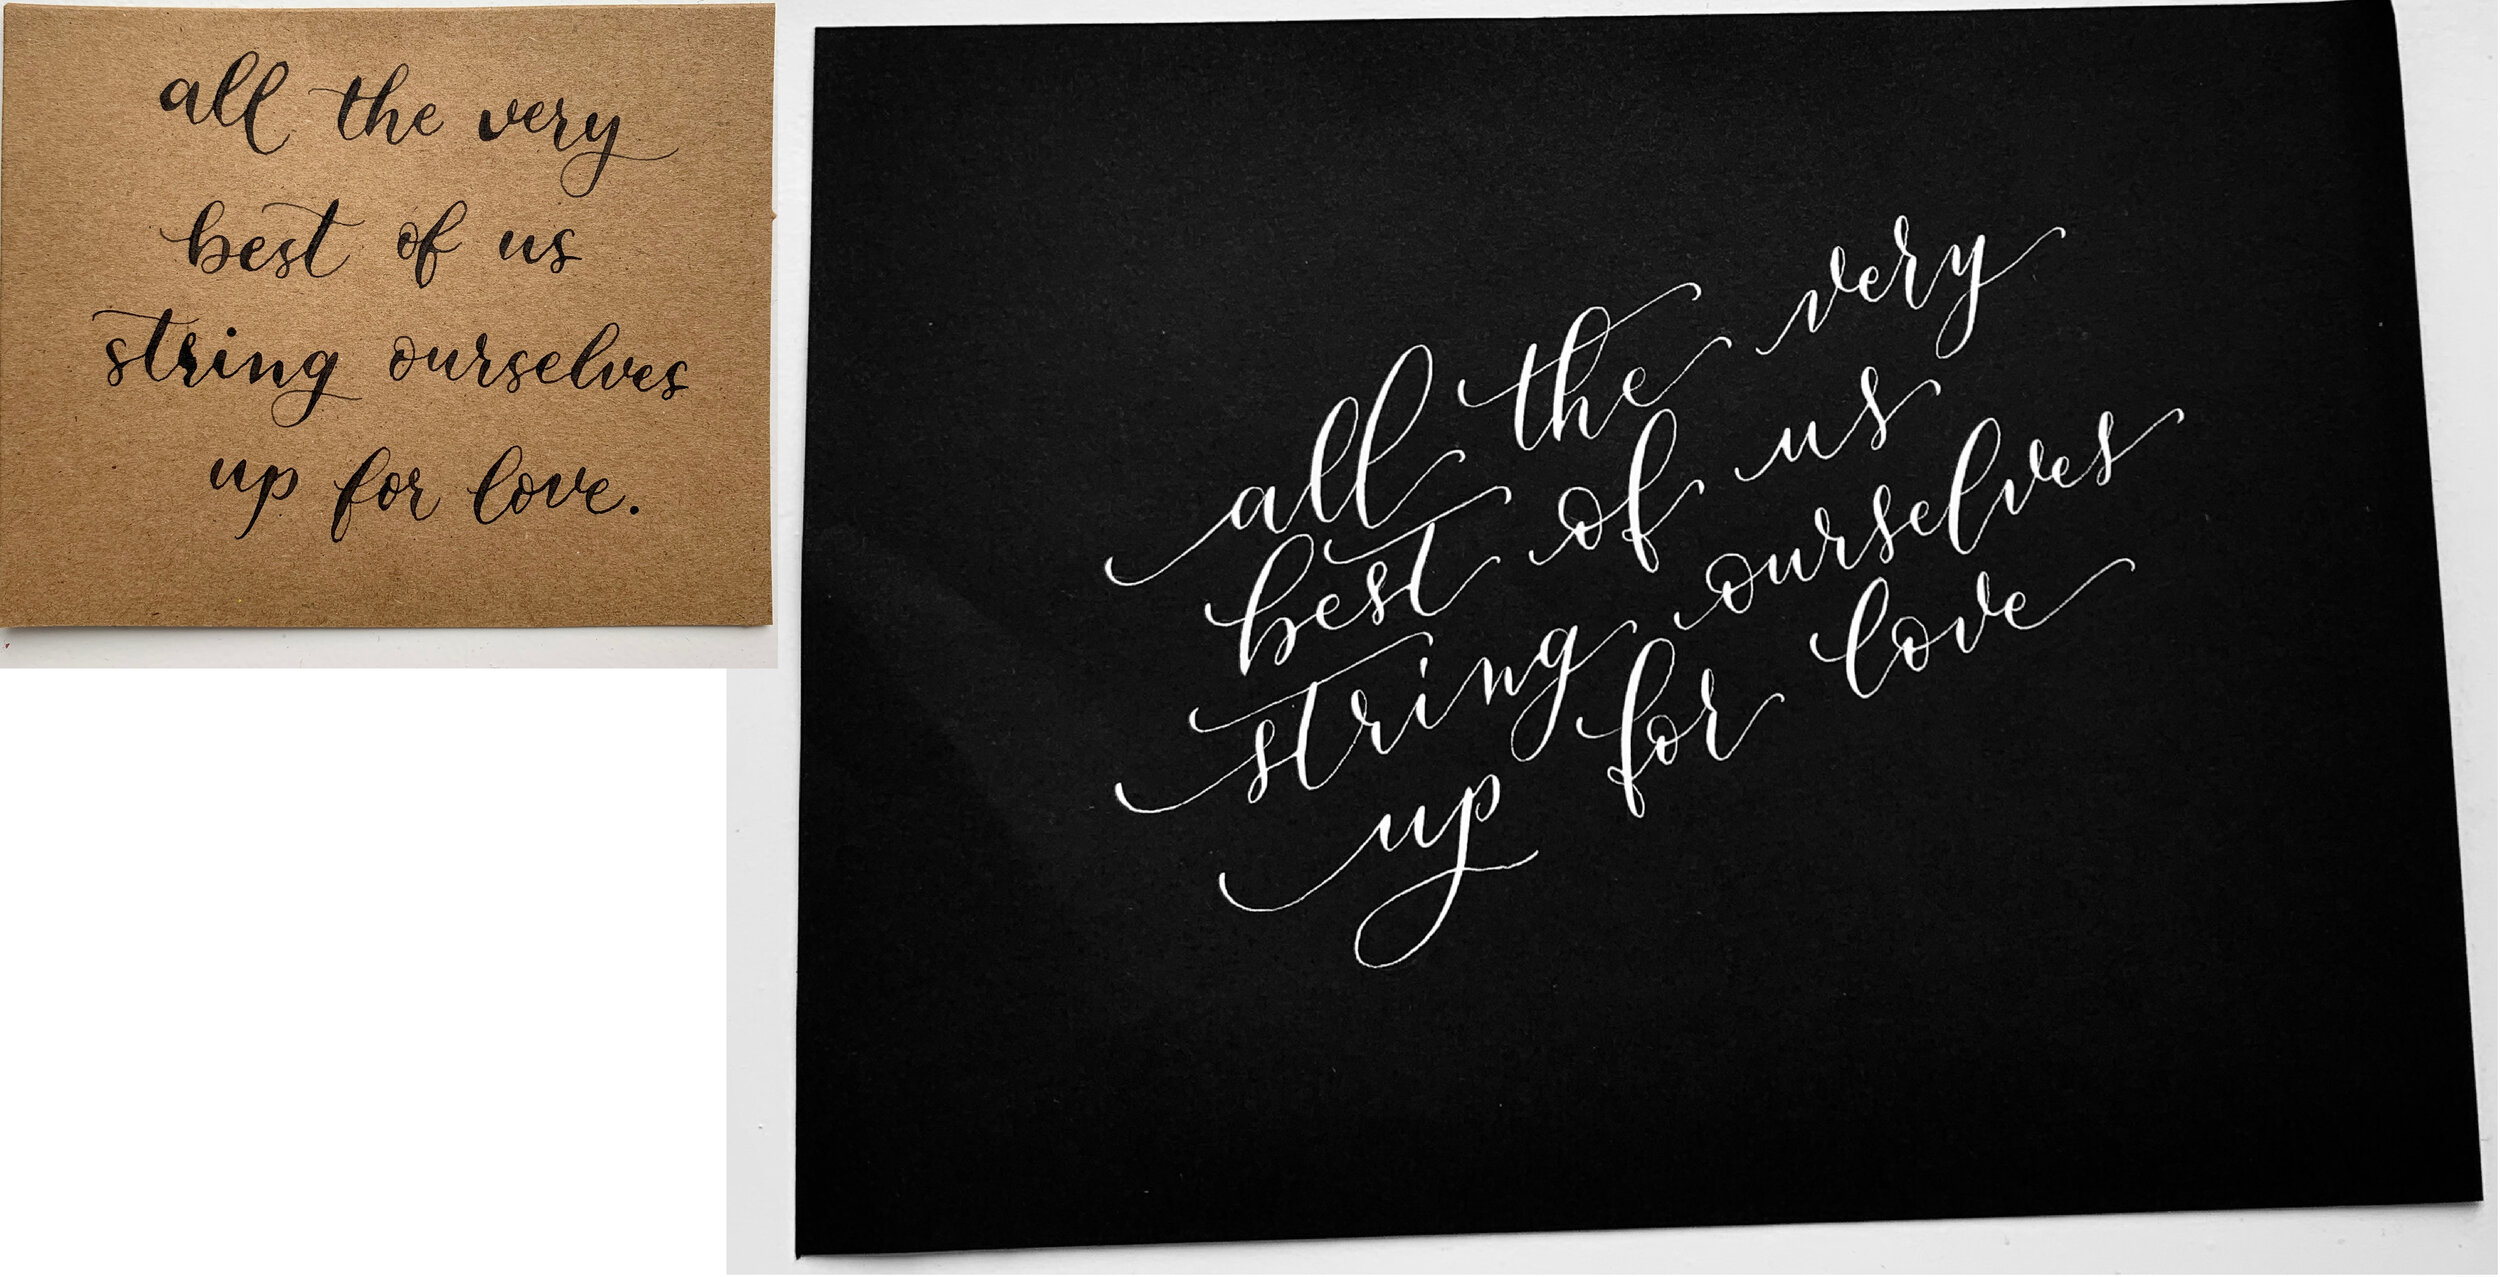 all the very
best of us
string ourselves
up for love.
all the very
best of us
string ourselves
up for love